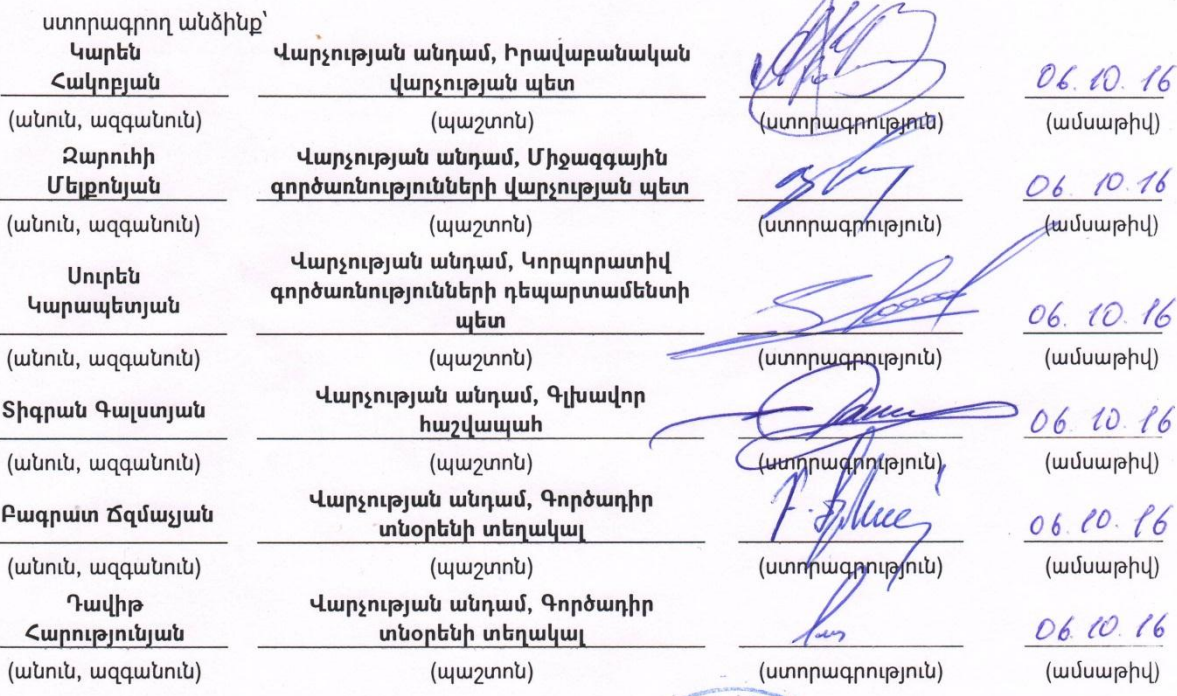 ստորագրող անձինք՝
Կարեն
Հակոբյան
Վարչության անդամ, Իրավաբանական
վարչության պետ
06.10.16
(անուն, ազգանուն) (պաշտոն) (ստորագրություն) (ամսաթիվ)
Զարուհի
Մելքոնյան
Վարչության անդամ, Միջազգային
գործառնությունների վարչության պետ
06.10.16
(անուն, ազգանուն) (պաշտոն) (ստորագրություն) (ամսաթիվ)
Սուրեն
Կարապետյան
Վարչության անդամ, Կորպորատիվ
գործառնությունների դեպարտամենտի
պետ
06.10.16
(անուն, ազգանուն) (պաշտոն) (ստորագրություն) (ամսաթիվ)
Տիգրան Գալստյան
Վարչության անդամ, Գլխավոր
հաշվապահ
06.10.16
(անուն, ազգանուն) (պաշտոն) (ստորագրություն) (ամսաթիվ)
Բագրատ Ճզմաչյան
Վարչության անդամ, Գործադիր
տնօրենի տեղակալ
06.10.16
(անուն, ազգանուն) (պաշտոն) (ստորագրություն) (ամսաթիվ)
Դավիթ
Հարությունյան
Վարչության անդամ, Գործադիր
տնօրենի տեղակալ
06.10.16
(անուն, ազգանուն) (պաշտոն) (ստորագրություն) (ամսաթիվ)